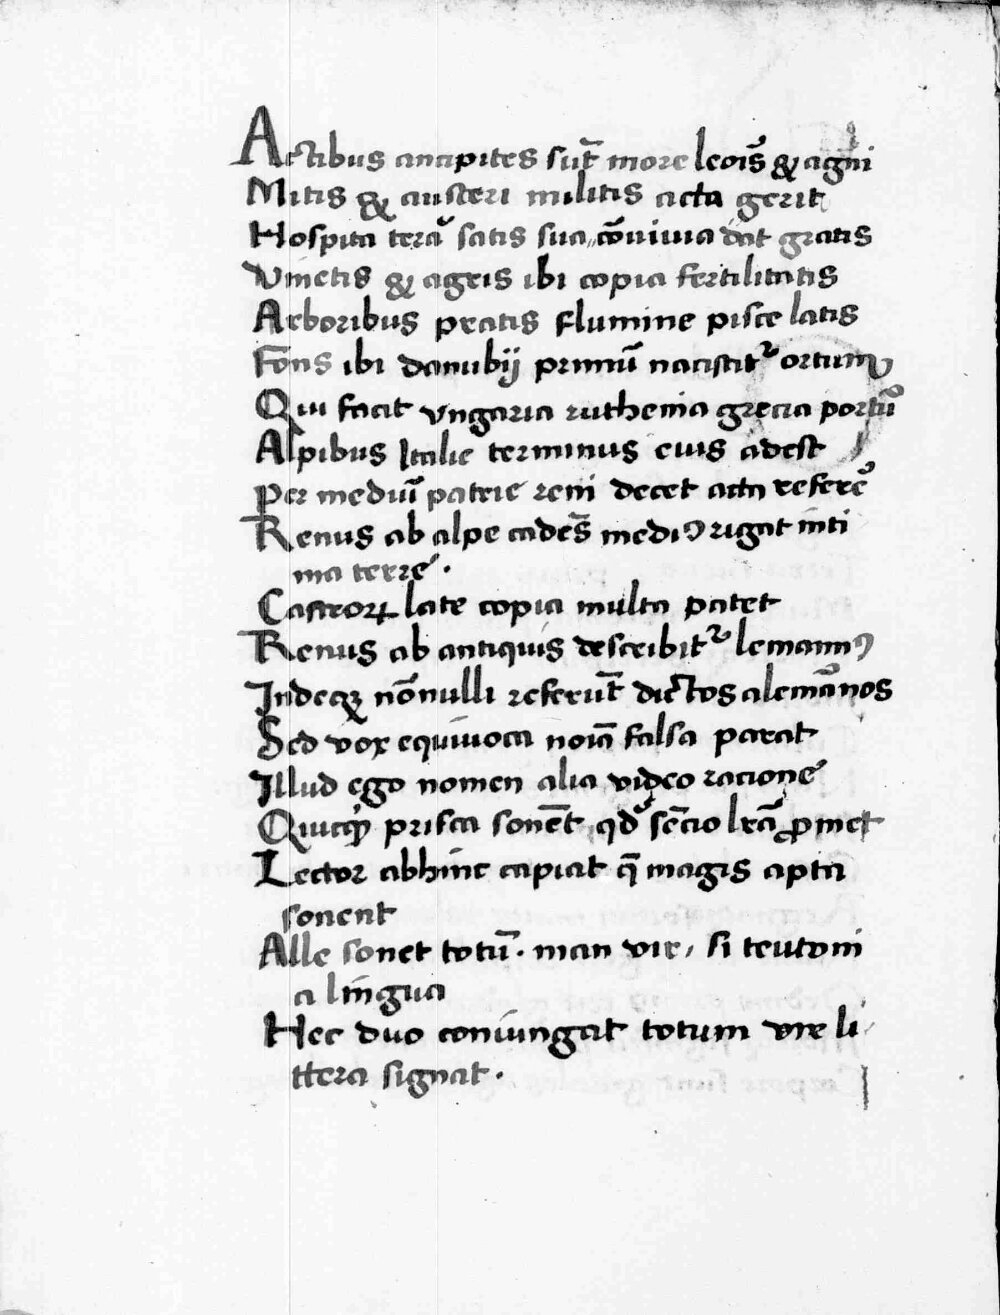 Actibus ancipites sūt more leoīs & agni
Mitis & austeri militis acta gerit
Hospita terā satis sua cōviuia dat gratis
Vinetis & agris ibi copia fertilitatis
Arboribus pratis flumine pisce latis
Fons ibi danubij primū nascitᷣ ortum
Qui facit vngaria ruthenia grecia portū
Alpibus Italie terminus eius adest
Per mediū patrie reni decet acta referē
Renus ab alpe cadēs mediꝰ rigat inti
ma terre.
Castroꝝ late copia multa patet
Renus ab antiquis describitᷣ lemannꝰ
Indeqꝫ nōnulli referūt dictos alemānos
Sed vox equiuoca noīa falsa parat
Illud ego nomen alia video racione
Quicqͥd prisca sonēt, qd̄ sēcio lrā ꝓmet
Lector abhinc capiat q̄ magis apta
sonent
Alle sonet totū. man vir, si teutoni
a lingua
Hec duo coniungat totum vire li
ttera signat.